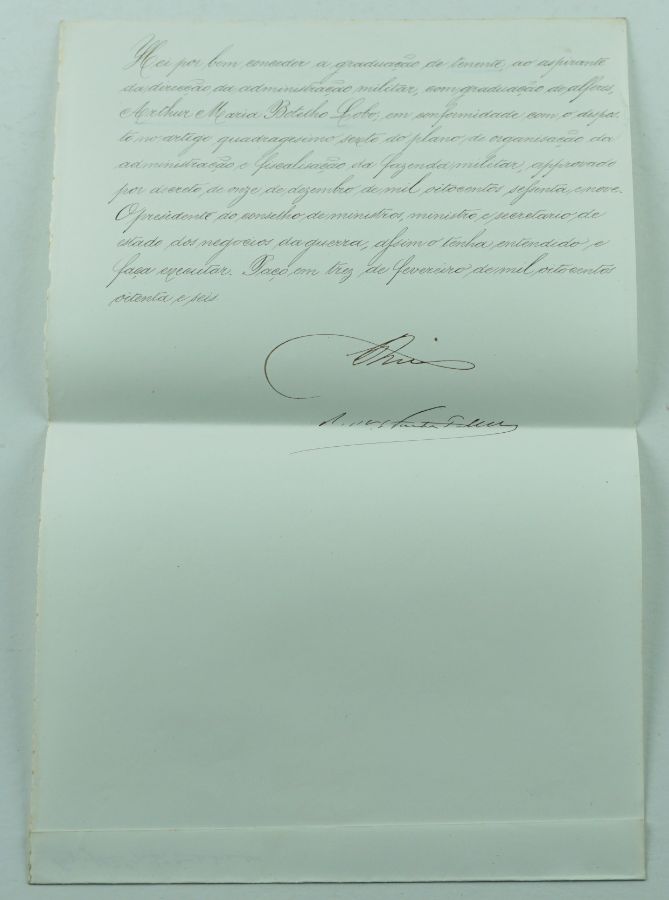 Hei por bem conceder a graduação de tenente, ao aspirante
da direcção da administração militar, com graduação de alferes,
Arthur Maria Botelho Lobo, em conformidade com o dispos-
to no artigo quadragesimo sexto do plano de organisação da
administração e fiscalisação da fazenda militar, approvado
por decreto de onze de dezembro de mil oitocentos sessenta e nove.
O presidente do conselho de ministros, ministro e secretario de
estado dos negocios da guerra, assim o tenha entendido, e
faça executar. Paço, em trez de fevereiro de mil oitocentos
oitenta e seis